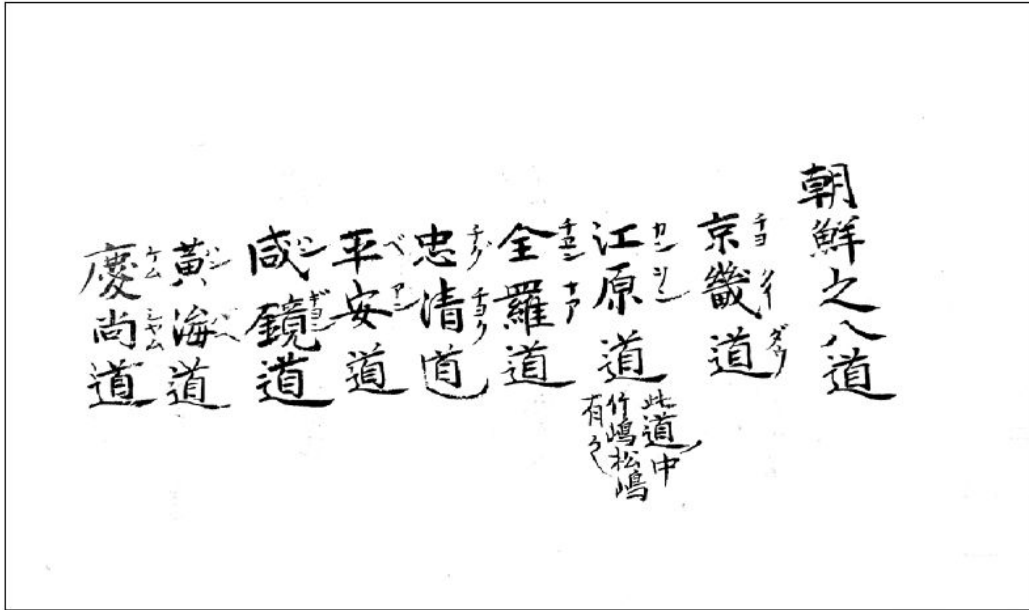 朝鮮之八道
京畿道
チヨ ダウ
江原道
カン
此道中
竹嶋松嶋
有之
全羅道
ナア
忠清道
チグ チヨク
平安道
ベ アン
咸鏡道
ハン ギヨン
黃海道
ハン
慶尚道
ケム シヤム